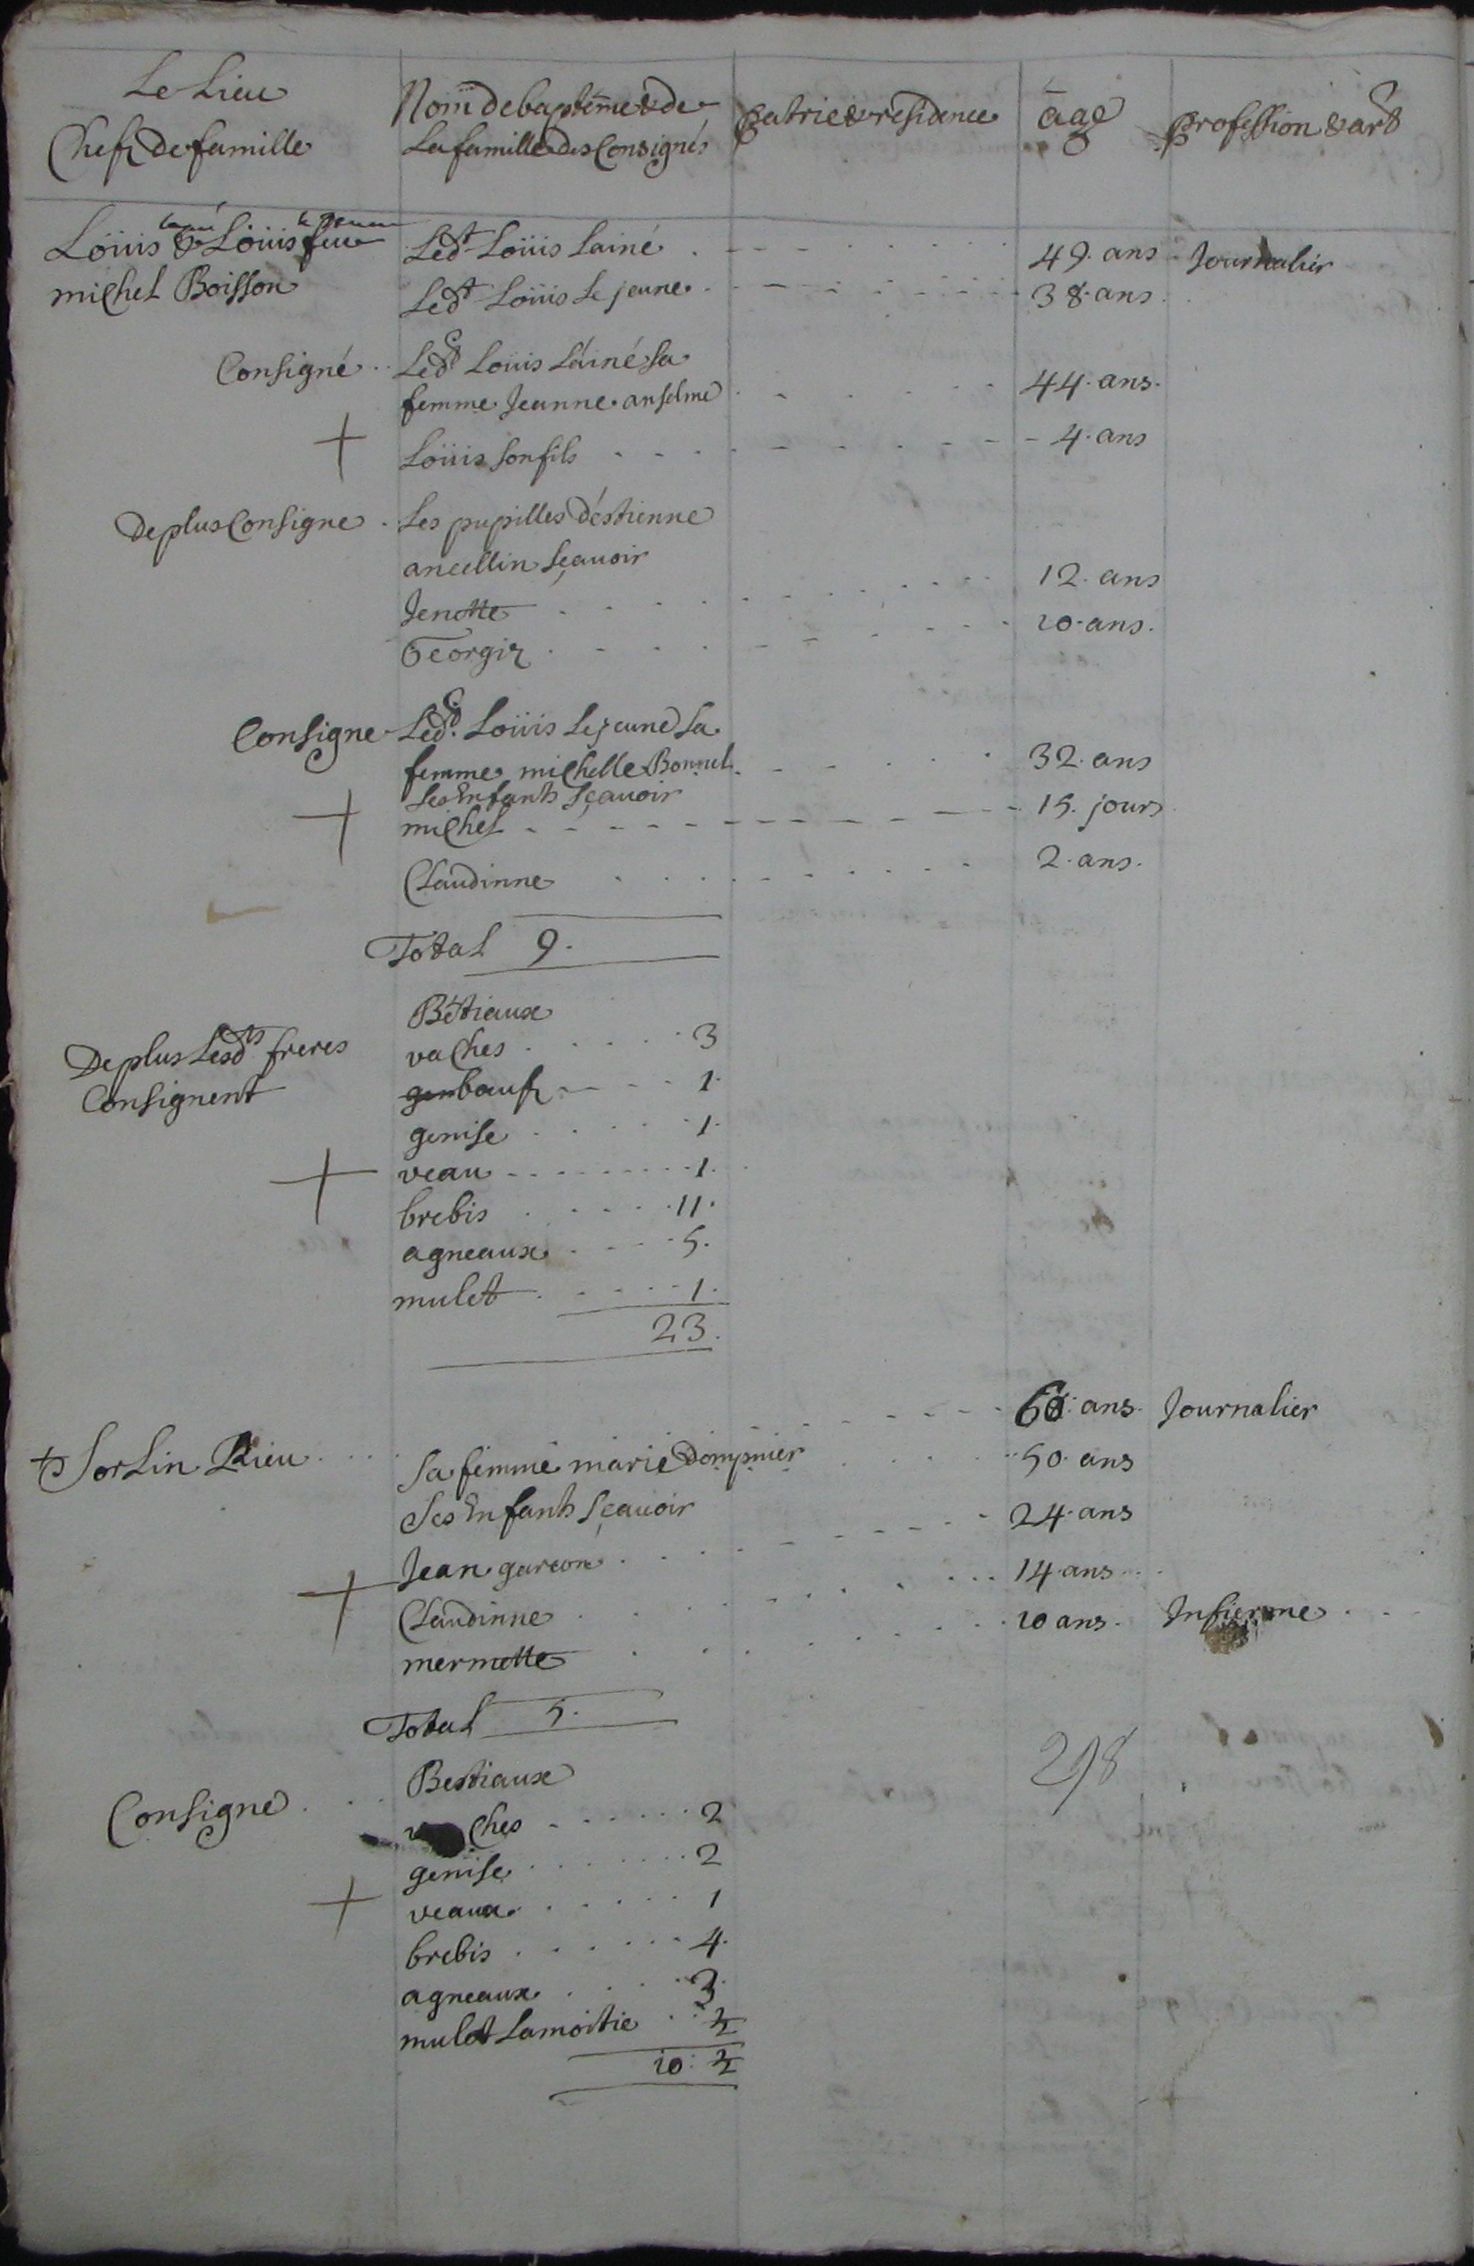 Le Lieu
Chefz de famille
Nom de baptême & de
La famille des Consignés
patrie & residence
age
profession & art
Loüis lainé & Loüis le jeune feu
michel Boisson
Led.t Loüis Lainé 49. ans Journalier
Led.t Loüis Le jeune 38. ans
Consigné Led.t Loüis Láiné Sa
femme Jeanne anselme 44. ans.
+ Loüis Son fils 4. ans
De plus Consigne Les pupilles d'éstienne
ancellin Sçauoir
Jenotte 12. ans
Georgiz 10. ans.
Consigne Led.t Loüis Le jeune Sa
femme michelle Bonnel 32. ans
Ses Enfants Sçauoir
+ michel 15. jours
Claudinne 2. ans.
Total 9.
Bétiaux
De plus Lesd.ts freres
Consignent
vaches 3
gen bœufz 1.
genise 1.
+ veau 1.
brebis 11.
agneaux 5.
mulet 1.
23.
+ Sorlin Rieu 60. ans. Journalier
Sa femme marie Dompnier 50. ans
Ses Enfants Sçauoir
Jean garcon 24. ans
+ Claudinne 14 ans
mermette 10 ans. Infierme
Total 5.
298
Bestiaux
Consigne
vaches 2
genise 2
+ veaux 1
brebis 4.
agneaux 3.
mulet Lamoitie ½
10: ½